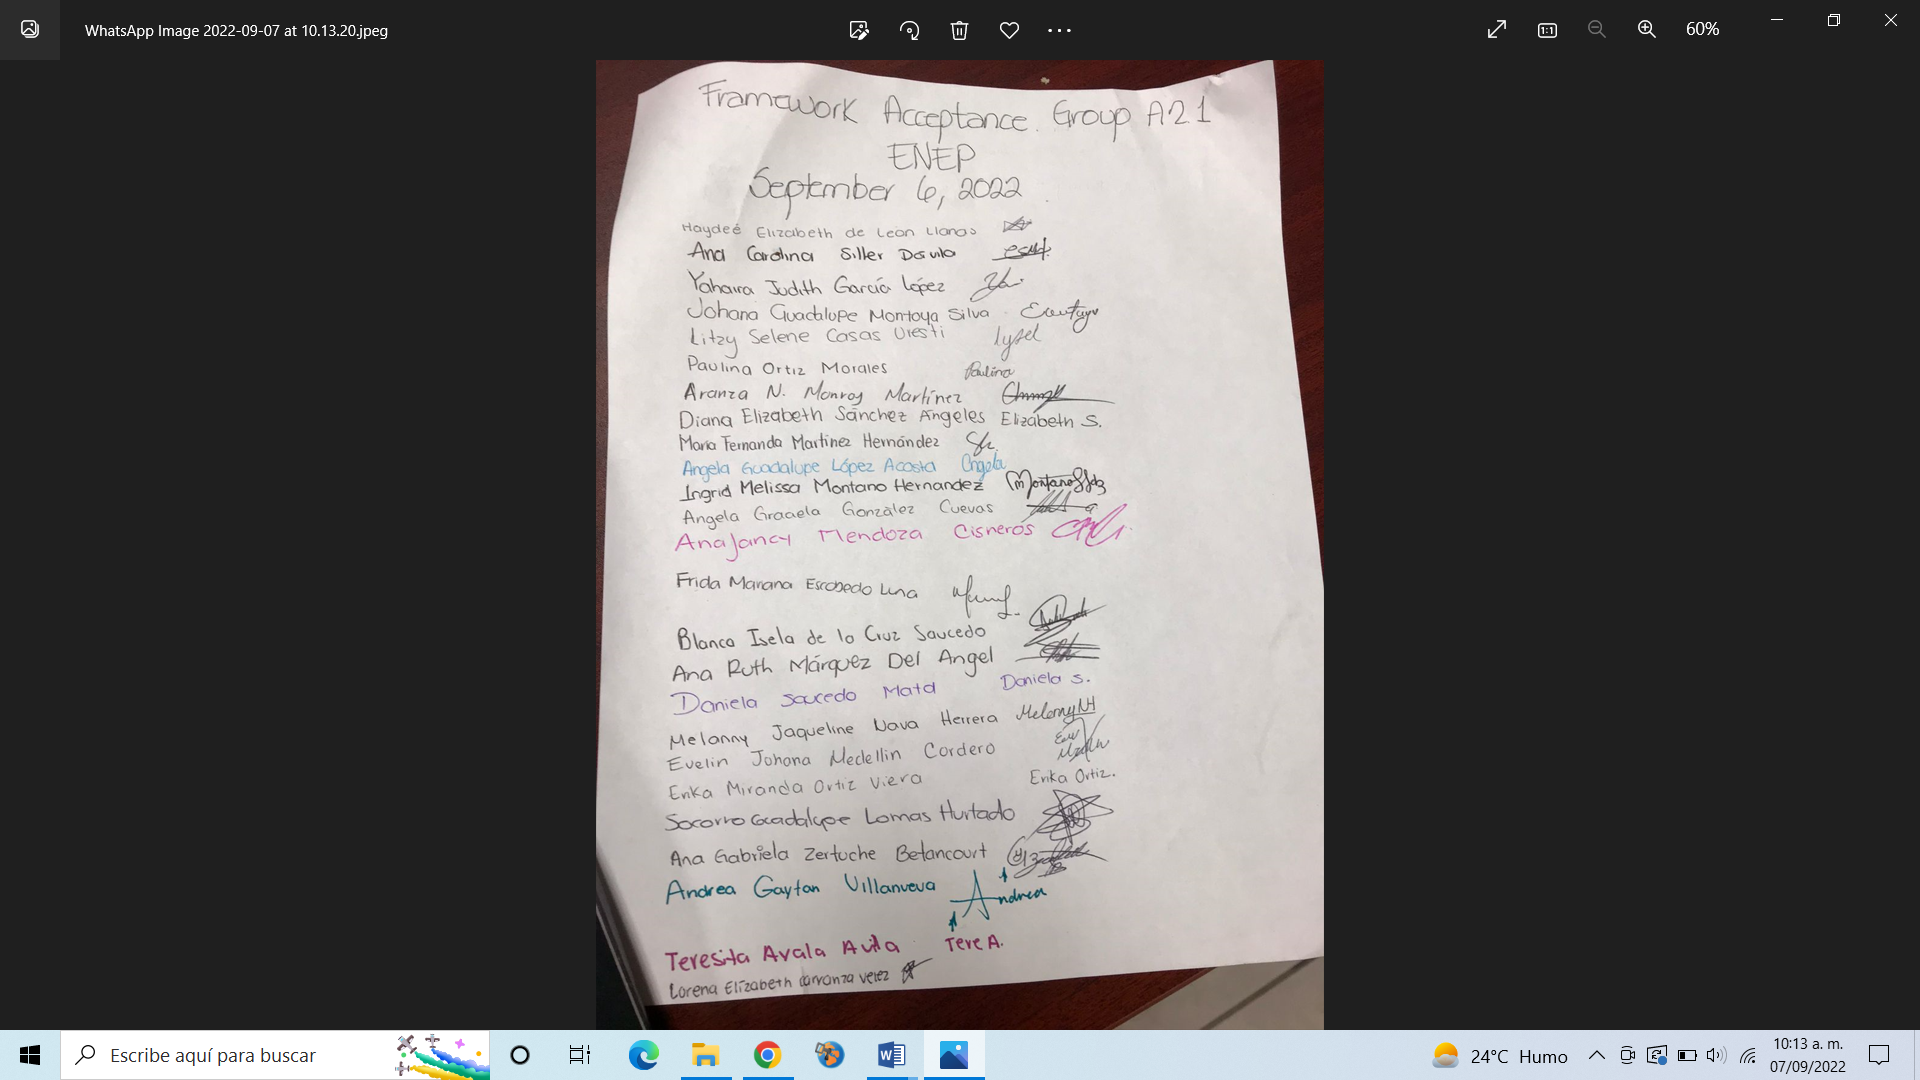 WhatsApp Image 2022-09-07 at 10.13.20.jpeg
60%
Framework Acceptance. Group A21
ENEP
September 6, 2022
Haydeé Elizabeth de León Llanas
Ana Carolina Siller Dávila
Yahaira Judith García López
Johana Guadalupe Montoya Silva
Litzy Selene Casas Uresti
Paulina Ortiz Morales Paulina
Aranza N. Monroy Martínez
Diana Elizabeth Sánchez Ángeles Elizabeth S.
María Fernanda Martínez Hernández
Angela Guadalupe López Acosta Angela
Ingrid Melissa Montano Hernandez
Angela Graciela González Cuevas
Ana Jancy Mendoza Cisneros
Frida Mariana Escobedo Luna
Blanca Isela de la Cruz Saucedo
Ana Ruth Márquez Del Angel
Daniela Saucedo Mata Daniela S.
Melanny Jaqueline Nava Herrera Melanny NH
Evelin Johana Medellin Cordero
Erika Miranda Ortiz Viera Erika Ortiz.
Socorro Guadalupe Lomas Hurtado
Ana Gabriela Zertuche Betancourt
Andrea Gaytan Villanueva Andrea
Teresita Ayala Avila Tere A.
Lorena Elizabeth Carranza Velez
Escribe aquí para buscar
24°C Humo
10:13 a. m.
07/09/2022